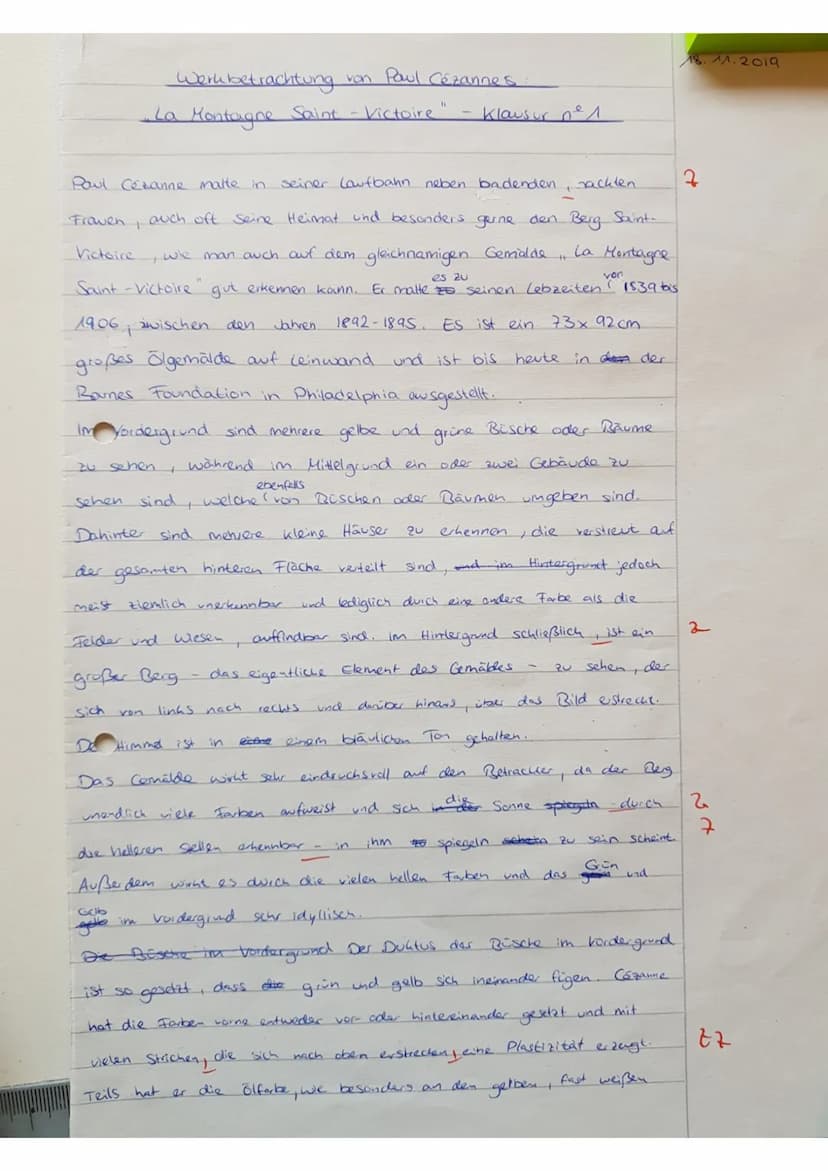 18.11.2019
Werkbetrachtung von Paul Cézannes
„La Montagne Saint-Victoire" - Klausur n°1
Paul Cézanne malte in seiner Laufbahn neben badenden, nackten
Frauen, auch oft seine Heimat und besonders gerne den Berg Saint-
Victoire, wie man auch auf dem gleichnamigen Gemälde „La Montagne
Saint-Victoire" gut erkennen kann. Er malte es zu seinen Lebzeiten von 1539 bis
1906, zwischen den Jahren 1892-1895. Es ist ein 73x92cm
großes Ölgemälde auf Leinwand und ist bis heute in der
Barnes Foundation in Philadelphia ausgestellt.
Im Vordergrund sind mehrere gelbe und grüne Büsche oder Bäume
zu sehen, während im Mittelgrund ein oder zwei Gebäude zu
sehen sind, welche ebenfalls von Büschen oder Bäumen umgeben sind.
Dahinter sind mehrere kleine Häuser zu erkennen, die verstreut auf
der gesamten hinteren Fläche verteilt sind, und im Hintergrund jedoch
meist ziemlich unerkennbar und lediglich durch eine andere Farbe als die
Felder und Wiesen, auffindbar sind. Im Hintergrund schließlich, ist ein
großer Berg - das eigentliche Element des Gemäldes - zu sehen, der
sich von links nach rechts und darüber hinaus, über das Bild erstreckt.
Der Himmel ist in einem bläulichen Ton gehalten.
Das Gemälde wirkt sehr eindrucksvoll auf den Betrachter, da der Berg
unendlich viele Farben aufweist und sich die Sonne - durch
die helleren Stellen erkennbar - in ihm spiegeln zu sein scheint.
Außerdem wirkt es durch die vielen hellen Farben und das Grün und
Gelb im Vordergrund sehr idyllisch.
Die Büsche im Vordergrund Der Duktus der Büsche im Vordergrund
ist so gesetzt, dass grün und gelb sich ineinander fügen. Cézanne
hat die Farben vorne entweder vor- oder hintereinander gesetzt und mit
vielen Strichen, die sich nach oben erstrecken, eine Plastizität erzeugt.
Teils hat er die Ölfarbe, wie besonders an den gelben, fast weißen